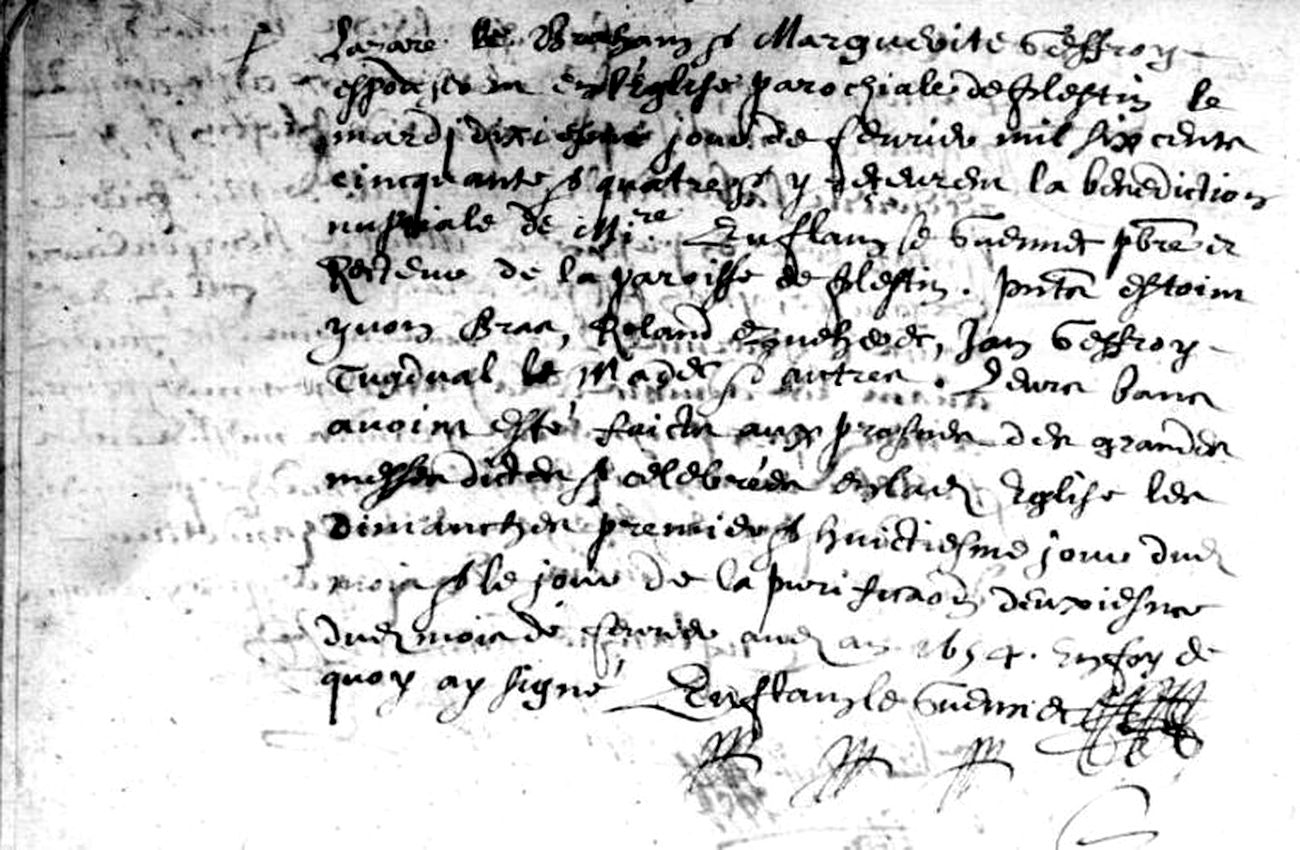 Lazare le Braham et Marguerite Geffroy
espousérent en l'églisse parochiale de Plestin le
mardj dixiesme jour de febvrier mil six cents
cinquante et quatre et y receurent la benediction
nuptiale de Mire Enflam le Guennec pbre et
Recteur de la paroisse de Plestin. pnts estoint
yvon Bras, Roland , Jan Geffroy
Tugdual le Madec et autres. Leurs bans
avoint esté faicts aux prosnes des grandes
messes dictes et celebrées en lad Eglise les
dimanches premier et huictiesme jour dud
mois et le jour de la purification deuxiesme
dud mois de febvrier aud an 1654. En foy de
quoy ay signé Enflam le Guennec